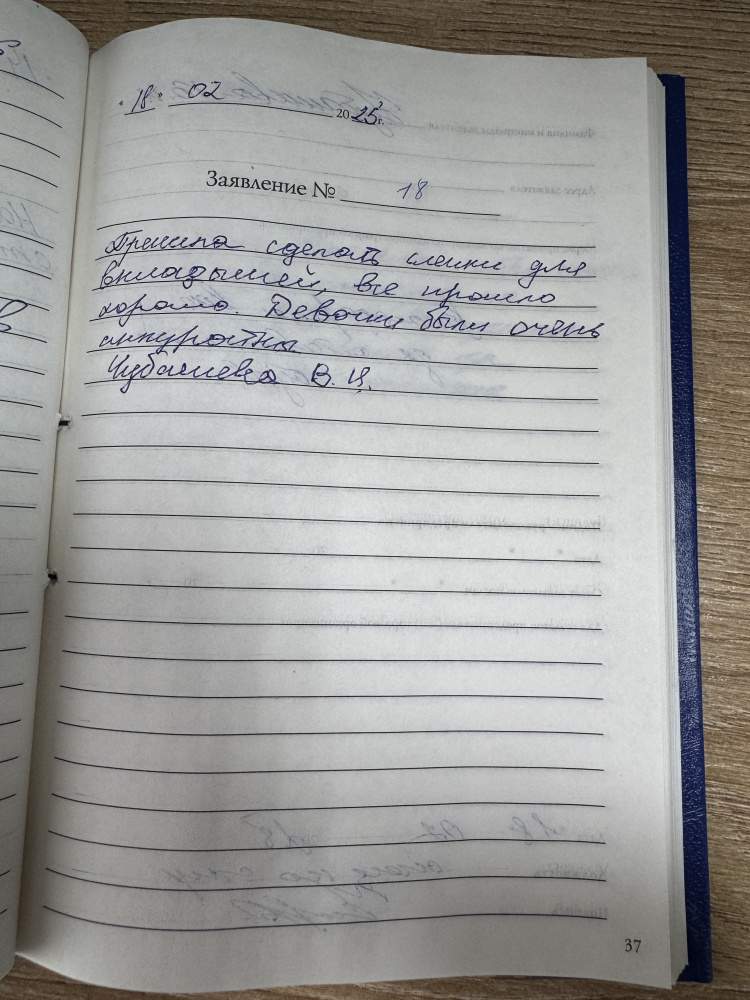 "18" 02 2025 г.
Заявление № 18
Пришла сделать слепки для
вкладышей, все прошло
хорошо. Девочки были очень
аккуратны
Чубашева В. Ц.
37